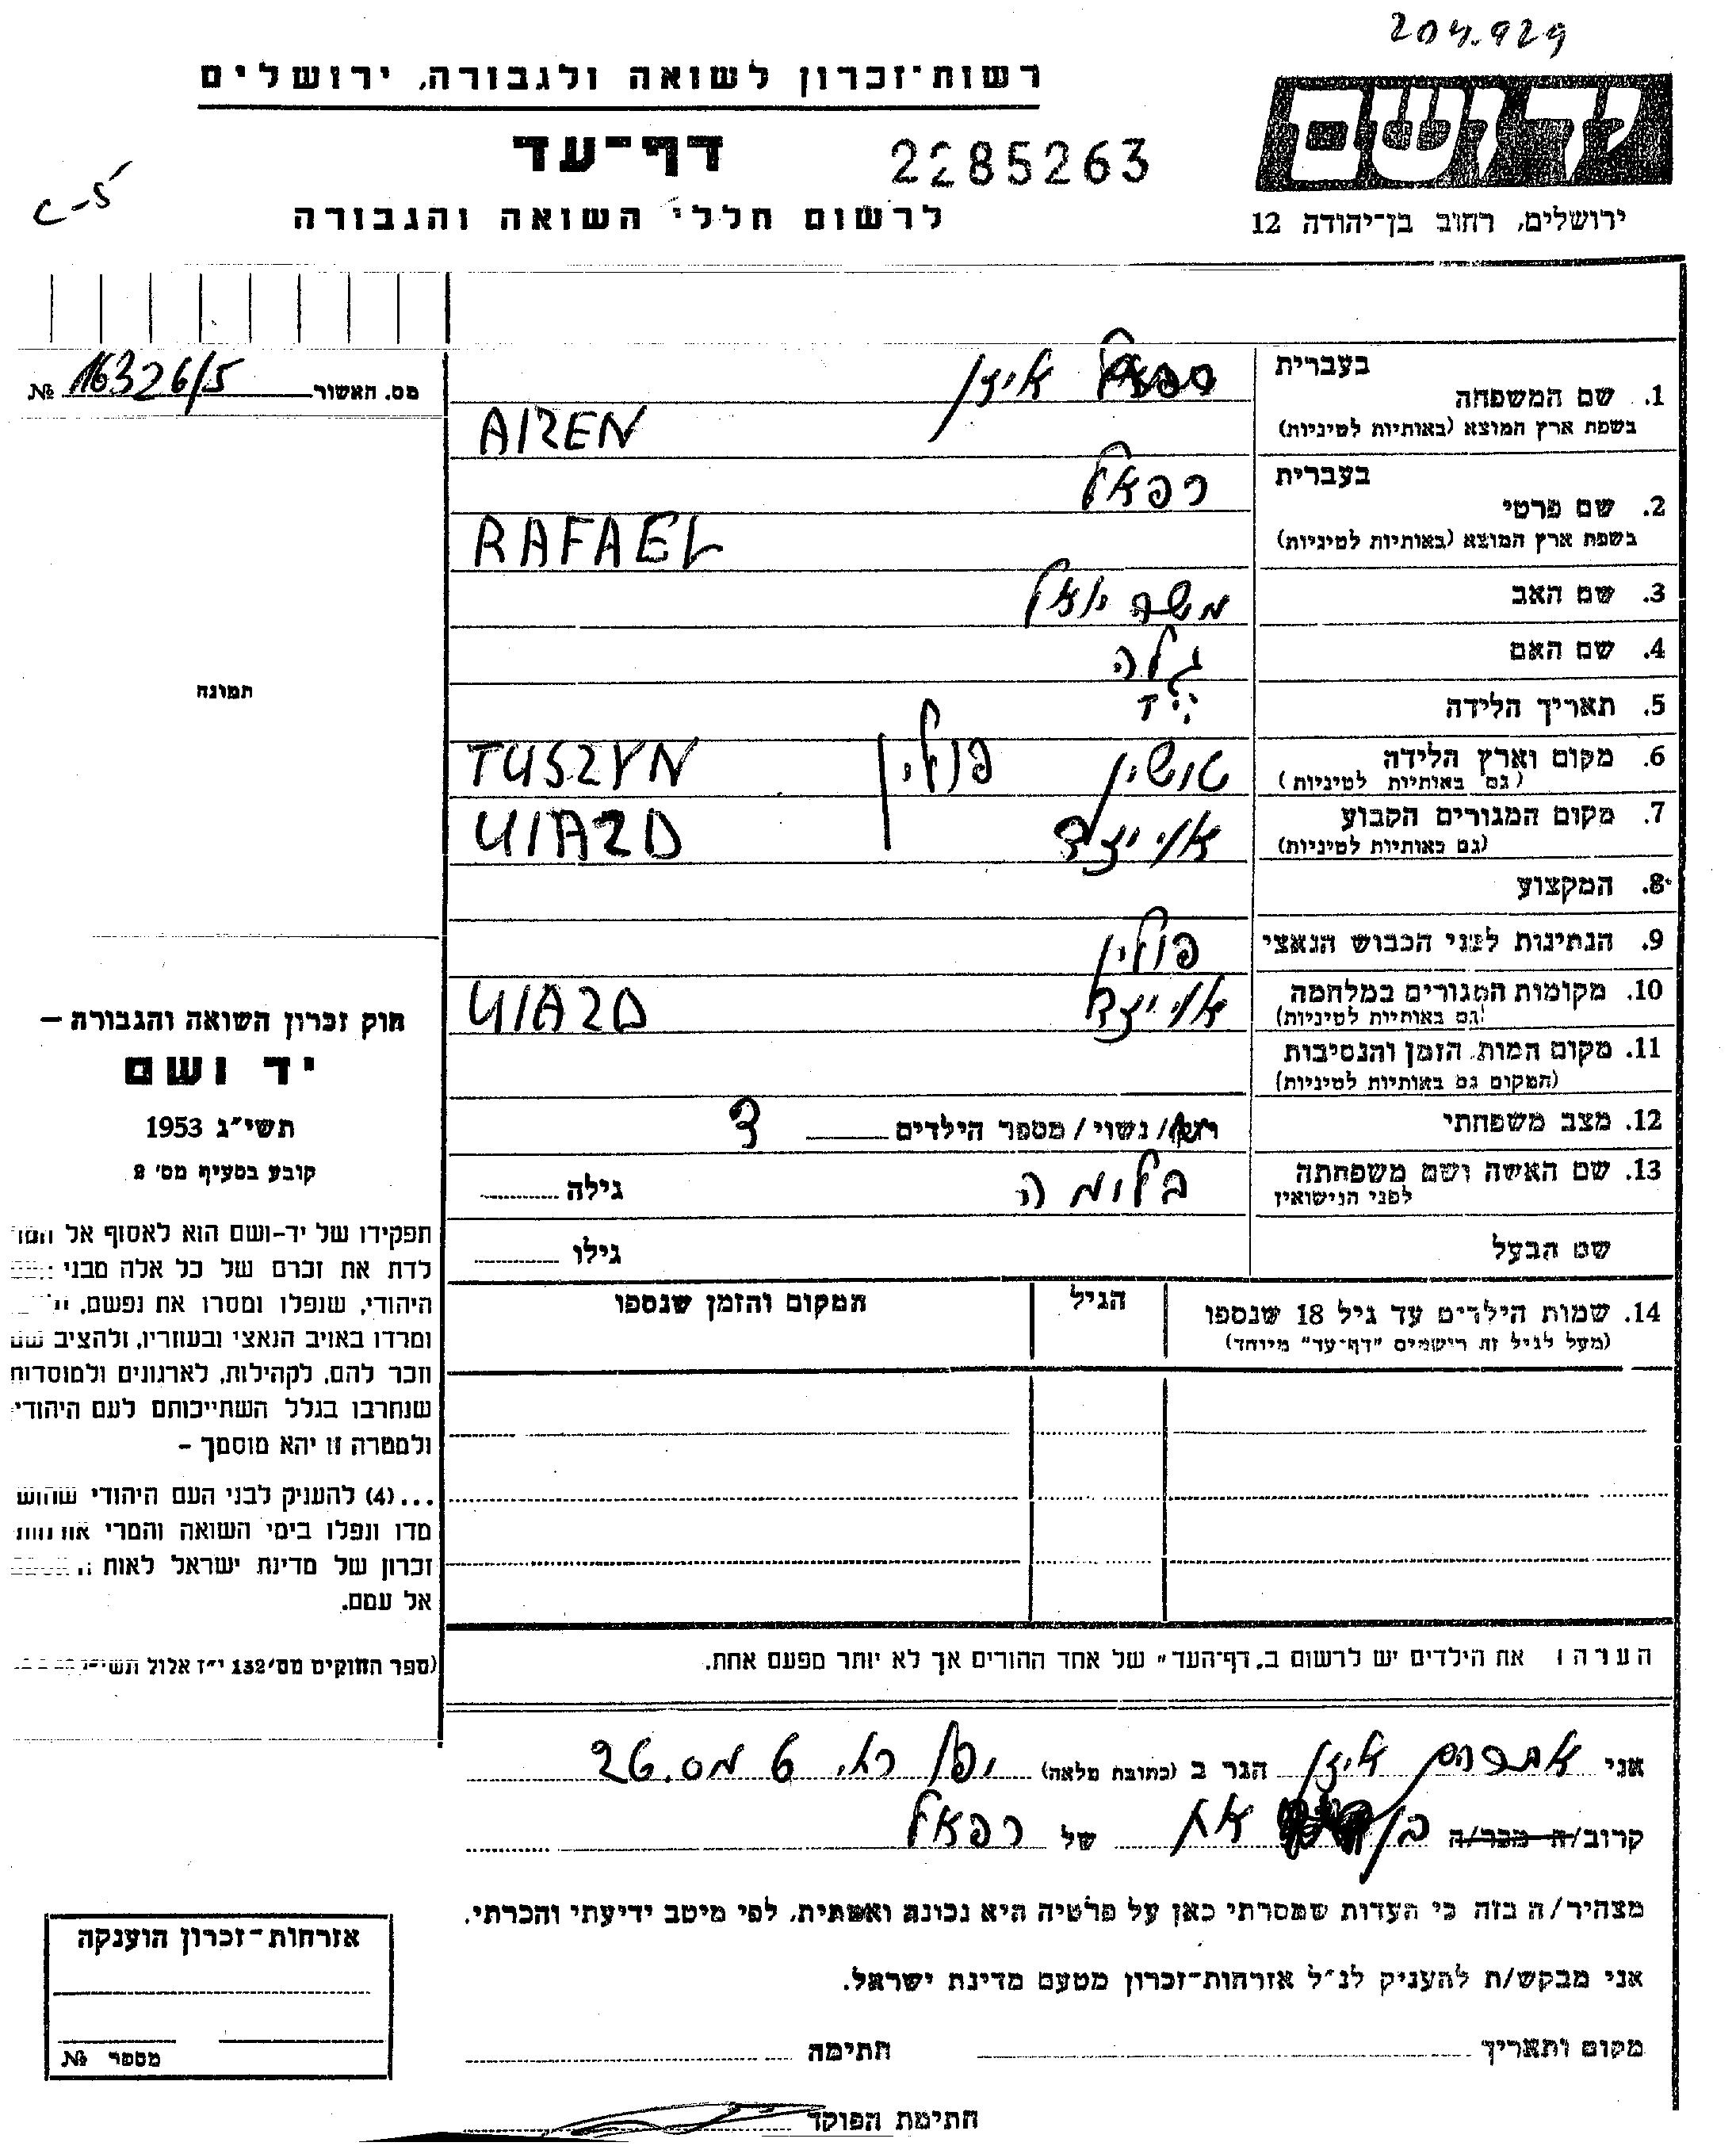 204.929
רשות־זכרון לשואה ולגבורה, ירושלים
ידושם
דף־עד
2285263
ירושלים, רחוב בן־יהודה 12
לרשום חללי השואה והגבורה
c-5
בעברית
1. שם המשפחה
בשפת ארץ המוצא (באותיות לטיניות)
איזן
AIZEN
מס. האשור 16326/5 №
בעברית
2. שם פרטי
בשפת ארץ המוצא (באותיות לטיניות)
רפאל
RAFAEL
3. שם האב
משה
4. שם האם
גילה
תמונה
5. תאריך הלידה
6. מקום וארץ הלידה
(גם באותיות לטיניות)
טושין פולין TUSZYN
7. מקום המגורים הקבוע
(גם באותיות לטיניות)
אוייזד UIAZD
8. המקצוע
9. הנתינות לפני הכבוש הנאצי
פולין
10. מקומות המגורים במלחמה
(גם באותיות לטיניות)
אוייזד UIAZD
11. מקום המות, הזמן והנסיבות
(המקום גם באותיות לטיניות)
12. מצב משפחתי
נשוי / מספר הילדים 3
13. שם האשה ושם משפחתה
לפני הנישואין
בלומה
גילה
שם הבעל
גילו
14. שמות הילדים עד גיל 18 שנספו
(מעל לגיל זה רישמים "דף־עד" מיוחד)
הגיל
המקום והזמן שנספו
חוק זכרון השואה והגבורה –
יד ושם
תשי"ג 1953
קובע בסעיף מס' 2
תפקידו של יד-ושם הוא לאסוף אל
לדת את זכרם של כל אלה מבני
היהודי, שנפלו ומסרו את נפשם,
ומרדו באויב הנאצי ובעוזריו, ולהציב שם
וזכר להם, לקהילות, לארגונים ולמוסדות
שנחרבו בגלל השתייכותם לעם היהודי
ולמטרה זו יהא מוסמך –
...(4) להעניק לבני העם היהודי שהוש
מדו ונפלו בימי השואה והמרי
זכרון של מדינת ישראל לאות
אל עמם.
(ספר החוקים מס' 132 י"ז אלול
הערה: את הילדים יש לרשום ב„דף־העד" של אחד ההורים אך לא יותר מפעם אחת.
אני אברהם איזן הגר ב (כתובת מלאה) 6 מס. 26
קרוב/ה מכר/ה בן אח של רפאל
מצהיר/ה בזה כי העדות שמסרתי כאן על פרטיה היא נכונה ואמתית, לפי מיטב ידיעתי והכרתי.
אני מבקש/ת להעניק לנ"ל אזרחות־זכרון מטעם מדינת ישראל.
מקום ותאריך חתימה
חתימת הפוקד
אזרחות־זכרון הוענקה
מספר №